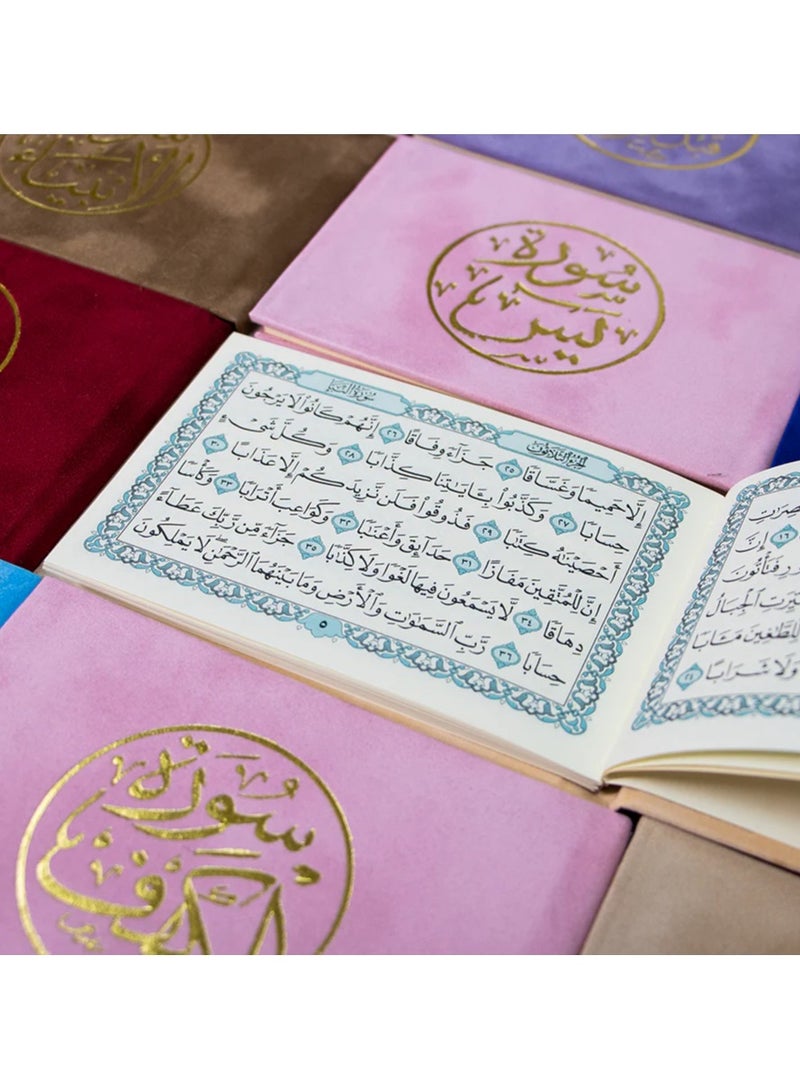 سورة
يس
الجزء الثلاثون
سورة النبإ
إِلَّا حَمِيمًا وَغَسَّاقًا ٢٥ جَزَآءً وِفَاقًا ٢٦ إِنَّهُمْ كَانُوا۟ لَا يَرْجُونَ
حِسَابًا ٢٧ وَكَذَّبُوا۟ بِـَٔايَٰتِنَا كِذَّابًا ٢٨ وَكُلَّ شَىْءٍ
أَحْصَيْنَٰهُ كِتَٰبًا ٢٩ فَذُوقُوا۟ فَلَن نَّزِيدَكُمْ إِلَّا عَذَابًا ٣٠
إِنَّ لِلْمُتَّقِينَ مَفَازًا ٣١ حَدَآئِقَ وَأَعْنَٰبًا ٣٢ وَكَوَاعِبَ أَتْرَابًا ٣٣ وَكَأْسًا
دِهَاقًا ٣٤ لَّا يَسْمَعُونَ فِيهَا لَغْوًا وَلَا كِذَّٰبًا ٣٥ جَزَآءً مِّن رَّبِّكَ عَطَآءً
حِسَابًا ٣٦ رَّبِّ السَّمَٰوَٰتِ وَالْأَرْضِ وَمَا بَيْنَهُمَا الرَّحْمَٰنِ لَا يَمْلِكُونَ
٥
١٦ إِنَّ
فَتَأْتُونَ
الْجِبَالُ
لِّلطَّٰغِينَ مَـَٔابًا
وَلَا شَرَابًا ٢٤
سورة
الكهف